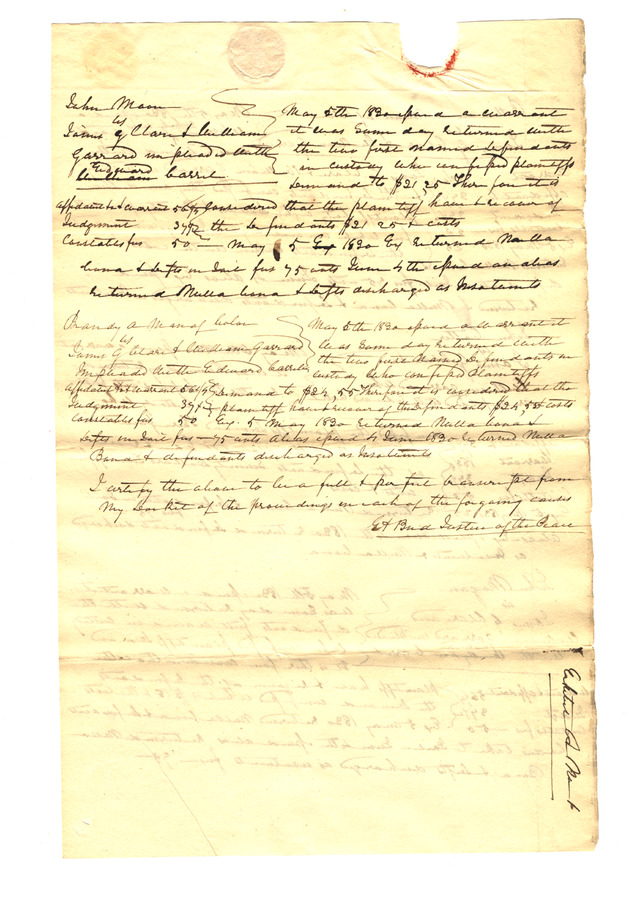 John Moon
vs
James G Clark & William
Garrard impleaded with
Edward
William Carrel
May 5th 1830 Issued a warrant
it was Same day Returned with
the two first Named Defendants
in custody who confessed plaintiffs
Demand to $21,25 Therefore it is
affidavit & warrant 56¼ Considered that the plaintiff have & recover of
Judgment 37½ the Defendants $21 25 & costs
Constables fees 50 — May 5 Ex 1830 Ex Returned Nulla
bona & Defts in Jail fees 75 cents June 4th Issued an alias
Returned Nulla bona & Defts discharged as Insolvents
Brandy a Man of Color
vs
James G Clark & William Garrard
Impleaded with Edward Carrel
May 5th 1830 Issued a Warrant it
was Same day Returned with
the two first Named Defendants in
custody who confessed Plaintiffs
affidavit & warrant 56¼ Demand to $24,55 Therefore it is considered that the
Judgment 37½ plaintiff have & recover of the Defendants $24,55 & costs
Constables fees 50 Ex. 5 May 1830 Returned Nulla bona &
Defts in Jail fees — 75 cents Alias Issued 4 June 1830 Returned Nulla
Bona & defendants discharged as Insolvents
I certify the above to be a full & perfect transcript from
My Docket of the proceedings in each of the forgoing causes
Justice of the Peace